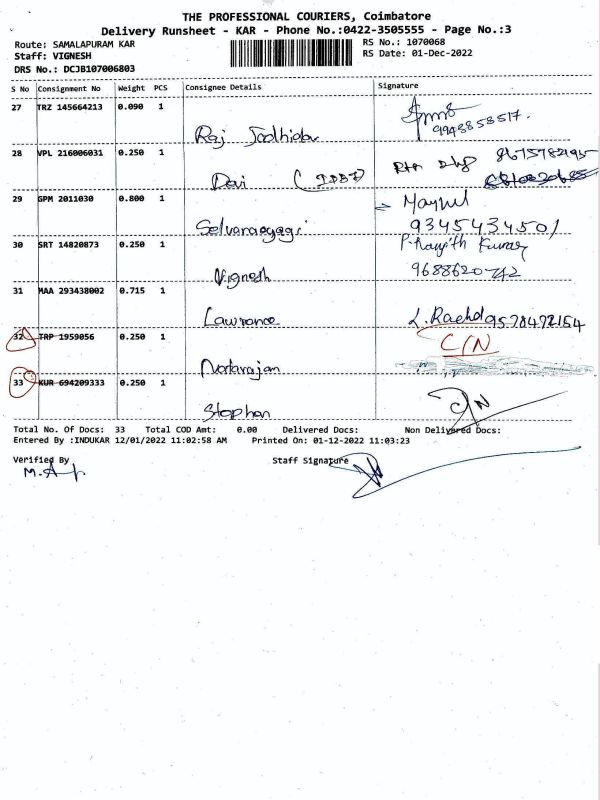 THE PROFESSIONAL COURIERS, Coimbatore
Delivery Runsheet - KAR - Phone No.:0422-3505555 - Page No.:3
Route: SAMALAPURAM KAR
RS No.: 1070068
Staff: VIGNESH
RS Date: 01-Dec-2022
DRS No.: DCJB107006803
S No Consignment No Weight PCS Consignee Details Signature
27 TRZ 145664213 0.090 1
9948858517.
Raj
28 VPL 216006031 0.250 1 8675782195
Devi (IDBI)
29 GPM 2011030 0.800 1
9345434501
30 SRT 14820873 0.250 1 P. Ranjith Kumar
Vignesh 9688620742
31 MAA 293438002 0.715 1
Lawrance 9578472154
32 TRP 1959056 0.250 1 C/N
Natarajan
33 KUR 694209333 0.250 1 C/N
Stephan
Total No. Of Docs: 33 Total COD Amt: 0.00 Delivered Docs: Non Delivered Docs:
Entered By :INDUKAR 12/01/2022 11:02:58 AM Printed On: 01-12-2022 11:03:23
Verified By Staff Signature